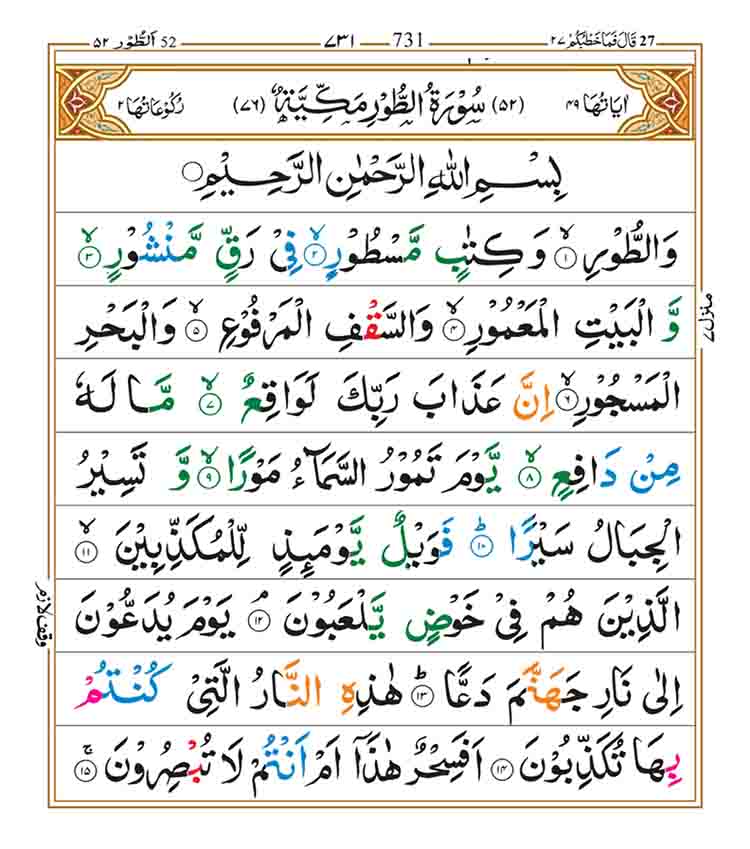 27 قَالَ فَمَا خَطْبُكُمْ ٢٧ 731 ٧٣١ 52 اَلطُّوْر ٥٢
اٰيَاتُهَا ٤٩ (٥٢) سُوْرَةُ الطُّوْرِ مَكِّيَّةٌ (٧٦) رُكُوْعَاتُهَا ٢
بِسْمِ اللهِ الرَّحْمٰنِ الرَّحِيْمِ
وَالطُّوْرِ ۙ﴿١﴾ وَكِتٰبٍ مَّسْطُوْرٍ ۙ﴿٢﴾ فِيْ رَقٍّ مَّنْشُوْرٍ ۙ﴿٣﴾
وَّ الْبَيْتِ الْمَعْمُوْرِ ۙ﴿٤﴾ وَالسَّقْفِ الْمَرْفُوْعِ ۙ﴿٥﴾ وَالْبَحْرِ
الْمَسْجُوْرِ ۙ﴿٦﴾ اِنَّ عَذَابَ رَبِّكَ لَوَاقِعٌ ۙ﴿٧﴾ مَّا لَهٗ
مِنْ دَافِعٍ ۙ﴿٨﴾ يَّوْمَ تَمُوْرُ السَّمَآءُ مَوْرًا ۙ﴿٩﴾ وَّ تَسِيْرُ
الْجِبَالُ سَيْرًا ؕ﴿١٠﴾ فَوَيْلٌ يَّوْمَئِذٍ لِّلْمُكَذِّبِيْنَ ۙ﴿١١﴾
الَّذِيْنَ هُمْ فِيْ خَوْضٍ يَّلْعَبُوْنَ ۘ﴿١٢﴾ يَوْمَ يُدَعُّوْنَ
اِلٰى نَارِ جَهَنَّمَ دَعًّا ؕ﴿١٣﴾ هٰذِهِ النَّارُ الَّتِيْ كُنْتُمْ
بِهَا تُكَذِّبُوْنَ ﴿١٤﴾ اَفَسِحْرٌ هٰذَآ اَمْ اَنْتُمْ لَا تُبْصِرُوْنَ ۚ﴿١٥﴾
منزل ٧
وقف لازم